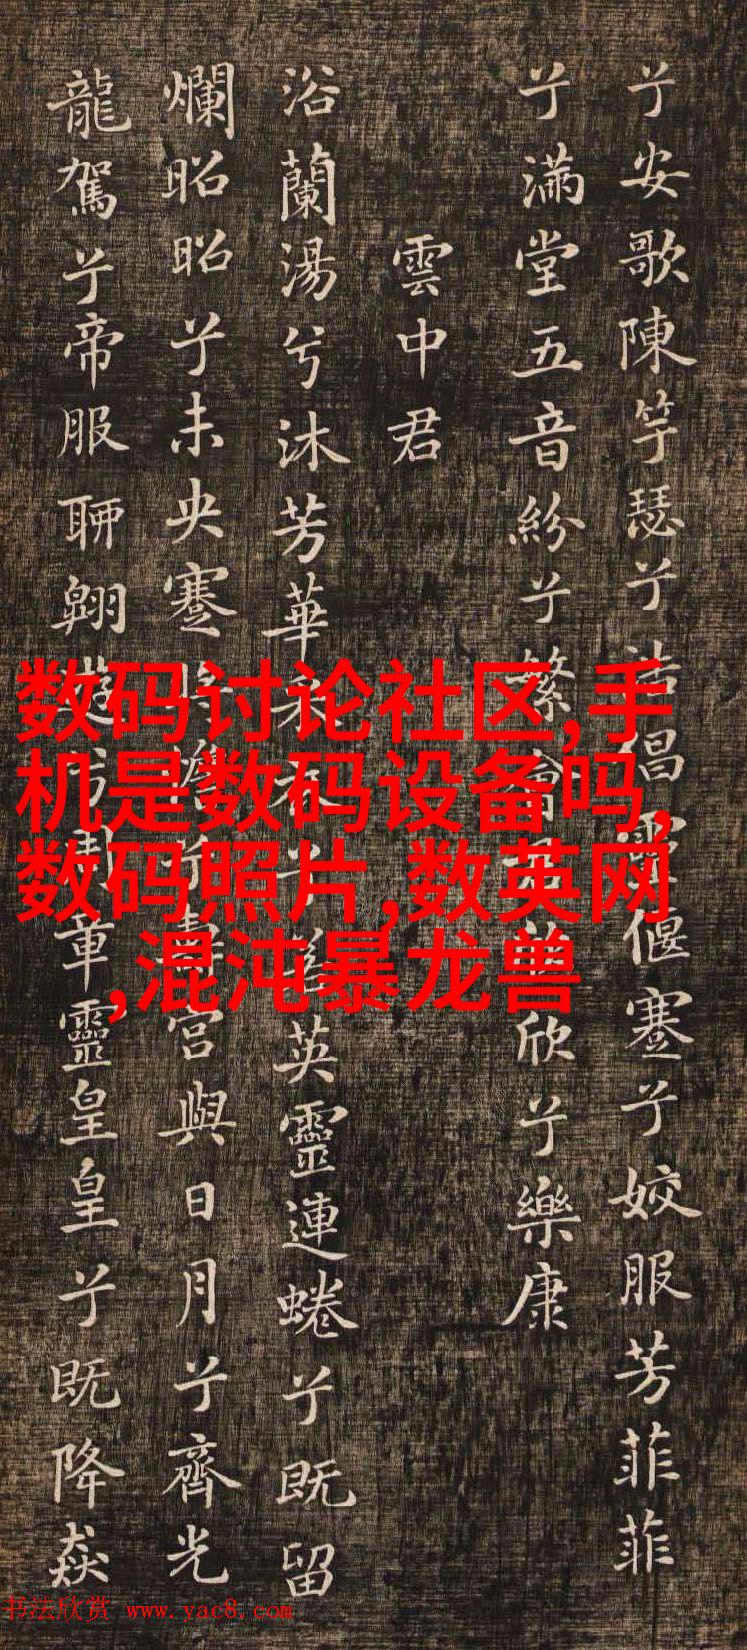 兮安歌陳竽瑟兮浩倡靈偃蹇兮姣服芳菲菲
兮滿堂五音紛兮繁會君欣欣兮樂康
雲中君
浴蘭湯兮沐芳華采衣兮若英靈連蜷兮既留
爛昭昭兮未央蹇將澹於壽宮與日月兮齊光
龍駕兮帝服聊翱遊兮周章靈皇皇兮既降猋
数码讨论社区,手
机是数码设备吗,
数码照片,数英网
,混沌暴龙兽
书法欣赏 www.yac8.com